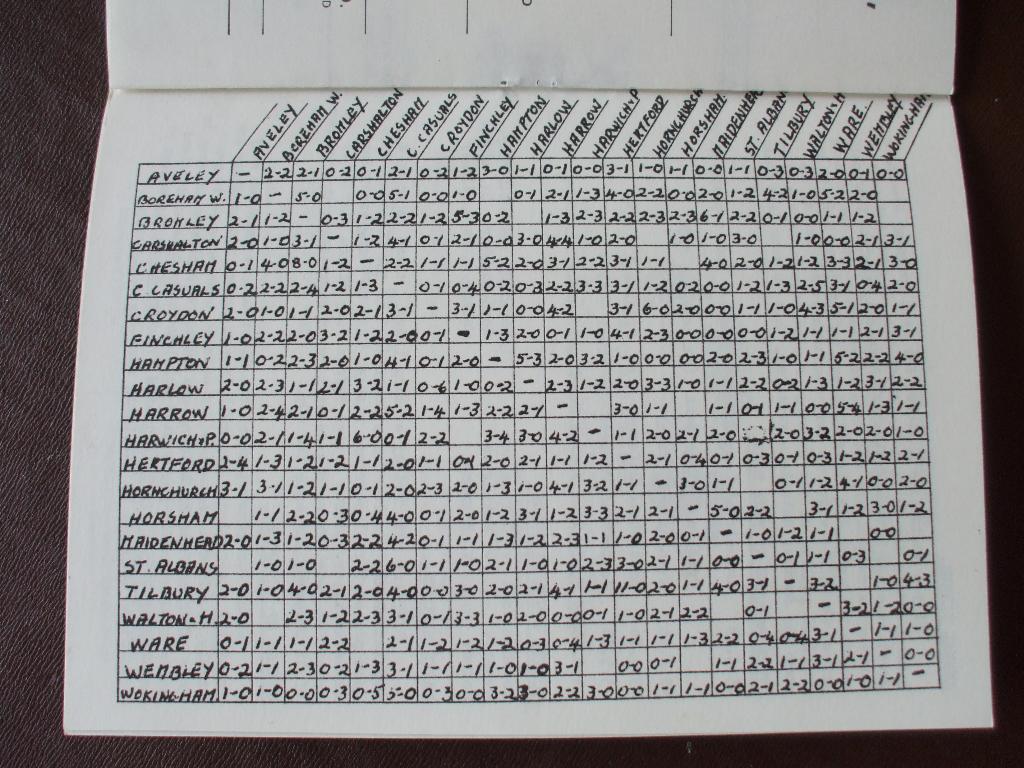 AVELEY BOREHAM W. BROMLEY CARSHALTON CHESHAM C. CASUALS CROYDON FINCHLEY HAMPTON HARLOW HARROW HARWICH&P HERTFORD HORNCHURCH HORSHAM MAIDENHEAD ST. ALBAN TILBURY WALTON&H WARE WEMBLEY WOKING-HAM
AVELEY - 2-2 2-1 0-2 0-1 2-1 0-2 1-2 3-0 1-1 0-1 0-0 3-1 1-0 1-1 0-0 1-1 0-3 0-3 2-0 0-1 0-0
BOREHAM W. 1-0 - 5-0 0-0 5-1 0-0 1-0 0-1 2-1 1-3 4-0 2-2 0-0 2-0 1-2 4-2 1-0 5-2 2-0
BROMLEY 2-1 1-2 - 0-3 1-2 2-2 1-2 5-3 0-2 1-3 2-3 2-2 2-3 2-3 6-1 2-2 0-1 0-0 1-1 1-2
CARSHALTON 2-0 1-0 3-1 - 1-2 4-1 0-1 2-1 0-0 3-0 4-4 1-0 2-0 1-0 1-0 3-0 1-0 0-0 2-1 3-1
CHESHAM 0-1 4-0 8-0 1-2 - 2-2 1-1 1-1 5-2 2-0 3-1 2-2 3-1 1-1 4-0 2-0 1-2 1-2 3-3 2-1 3-0
C. CASUALS 0-2 2-2 2-4 1-2 1-3 - 0-1 0-4 0-2 0-3 2-2 3-3 3-1 1-2 0-2 0-0 1-2 1-3 2-5 3-1 0-4 2-0
CROYDON 2-0 1-0 1-1 2-0 2-1 3-1 - 3-1 1-1 0-0 4-2 3-1 6-0 2-0 0-0 1-1 1-0 4-3 5-1 2-0 1-1
FINCHLEY 1-0 2-2 2-0 3-2 1-2 2-0 0-1 - 1-3 2-0 0-1 1-0 4-1 2-3 0-0 0-0 0-0 1-2 1-1 1-1 2-1 3-1
HAMPTON 1-1 0-2 2-3 2-0 1-0 4-1 0-1 2-0 - 5-3 2-0 3-2 1-0 0-0 0-0 2-0 2-3 1-0 1-1 5-2 2-2 4-0
HARLOW 2-0 2-3 1-1 2-1 3-2 1-1 0-6 1-0 0-2 - 2-3 1-2 2-0 3-3 1-0 1-1 2-2 0-2 1-3 1-2 3-1 2-2
HARROW 1-0 2-4 2-1 0-1 2-2 5-2 1-4 1-3 2-2 2-1 - 3-0 1-1 1-1 0-1 1-1 0-0 5-4 1-3 1-1
HARWICH&P. 0-0 2-1 1-4 1-1 6-0 0-1 2-2 3-4 3-0 4-2 - 1-1 2-0 2-1 2-0 2-0 3-2 2-0 2-0 1-0
HERTFORD 2-4 1-3 1-2 1-2 1-1 2-0 1-1 0-1 2-0 2-1 1-1 1-2 - 2-1 0-4 0-1 0-3 0-1 0-3 1-2 1-2 2-1
HORNCHURCH 3-1 3-1 1-2 1-1 0-1 2-0 2-3 2-0 1-3 1-0 4-1 3-2 1-1 - 3-0 1-1 0-1 1-2 4-1 0-0 2-0
HORSHAM 1-1 2-2 0-3 0-4 4-0 0-1 2-0 1-2 3-1 1-2 3-3 2-1 2-1 - 5-0 2-2 3-1 1-2 3-0 1-2
MAIDENHEAD 2-0 1-3 1-2 0-3 2-2 4-2 0-1 1-1 1-3 1-2 2-3 1-1 1-0 2-0 0-1 - 1-0 1-2 1-1 0-0
ST. ALBANS 1-0 1-0 2-2 6-0 1-1 1-0 2-1 1-0 1-0 2-3 3-0 2-1 1-1 0-0 - 0-1 1-1 0-3 0-1
TILBURY 2-0 1-0 4-0 2-1 2-0 4-0 0-0 3-0 2-0 2-1 4-1 1-1 11-0 2-0 1-1 4-0 3-1 - 3-2 1-0 4-3
WALTON&H 2-0 2-3 1-2 2-3 3-1 0-1 3-3 1-0 2-0 0-0 0-1 1-0 2-1 2-2 0-1 - 3-2 1-2 0-0
WARE 0-1 1-1 1-1 2-2 2-1 1-2 1-2 1-2 0-3 0-4 1-3 1-1 1-1 1-3 2-2 0-4 0-4 3-1 - 1-1 1-0
WEMBLEY 0-2 1-1 2-3 0-2 1-3 3-1 1-1 1-1 1-0 1-0 3-1 0-0 0-1 1-1 2-2 1-1 3-1 2-1 - 0-0
WOKING-HAM. 1-0 1-0 0-0 0-3 0-5 5-0 0-3 0-0 3-2 3-0 2-2 3-0 0-0 1-1 1-1 0-0 2-1 2-2 0-0 1-0 1-1 -